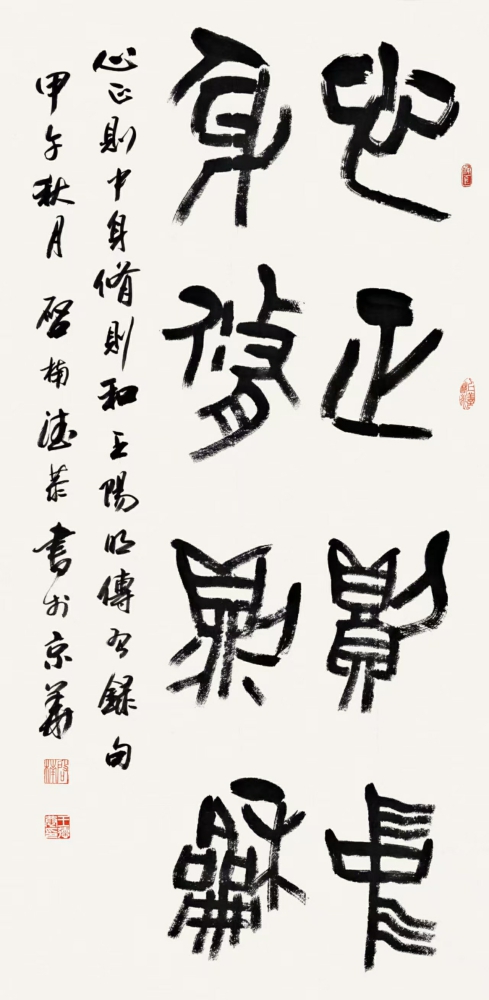 心正則中
身修則龢
心正則中身脩則和王陽明傳習錄句
甲午秋月啟楠德恭書於京華